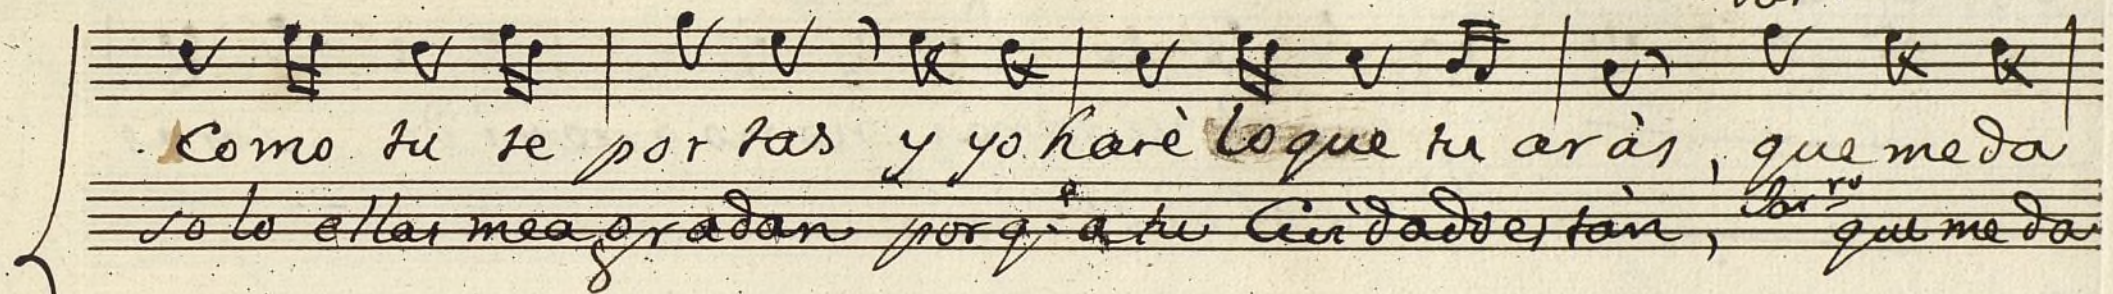 Como tu te por tas y yo harè lo que tu aràs, que me da
so lo ellas me agradan porq.e a tu Cuidado estàn, que me da